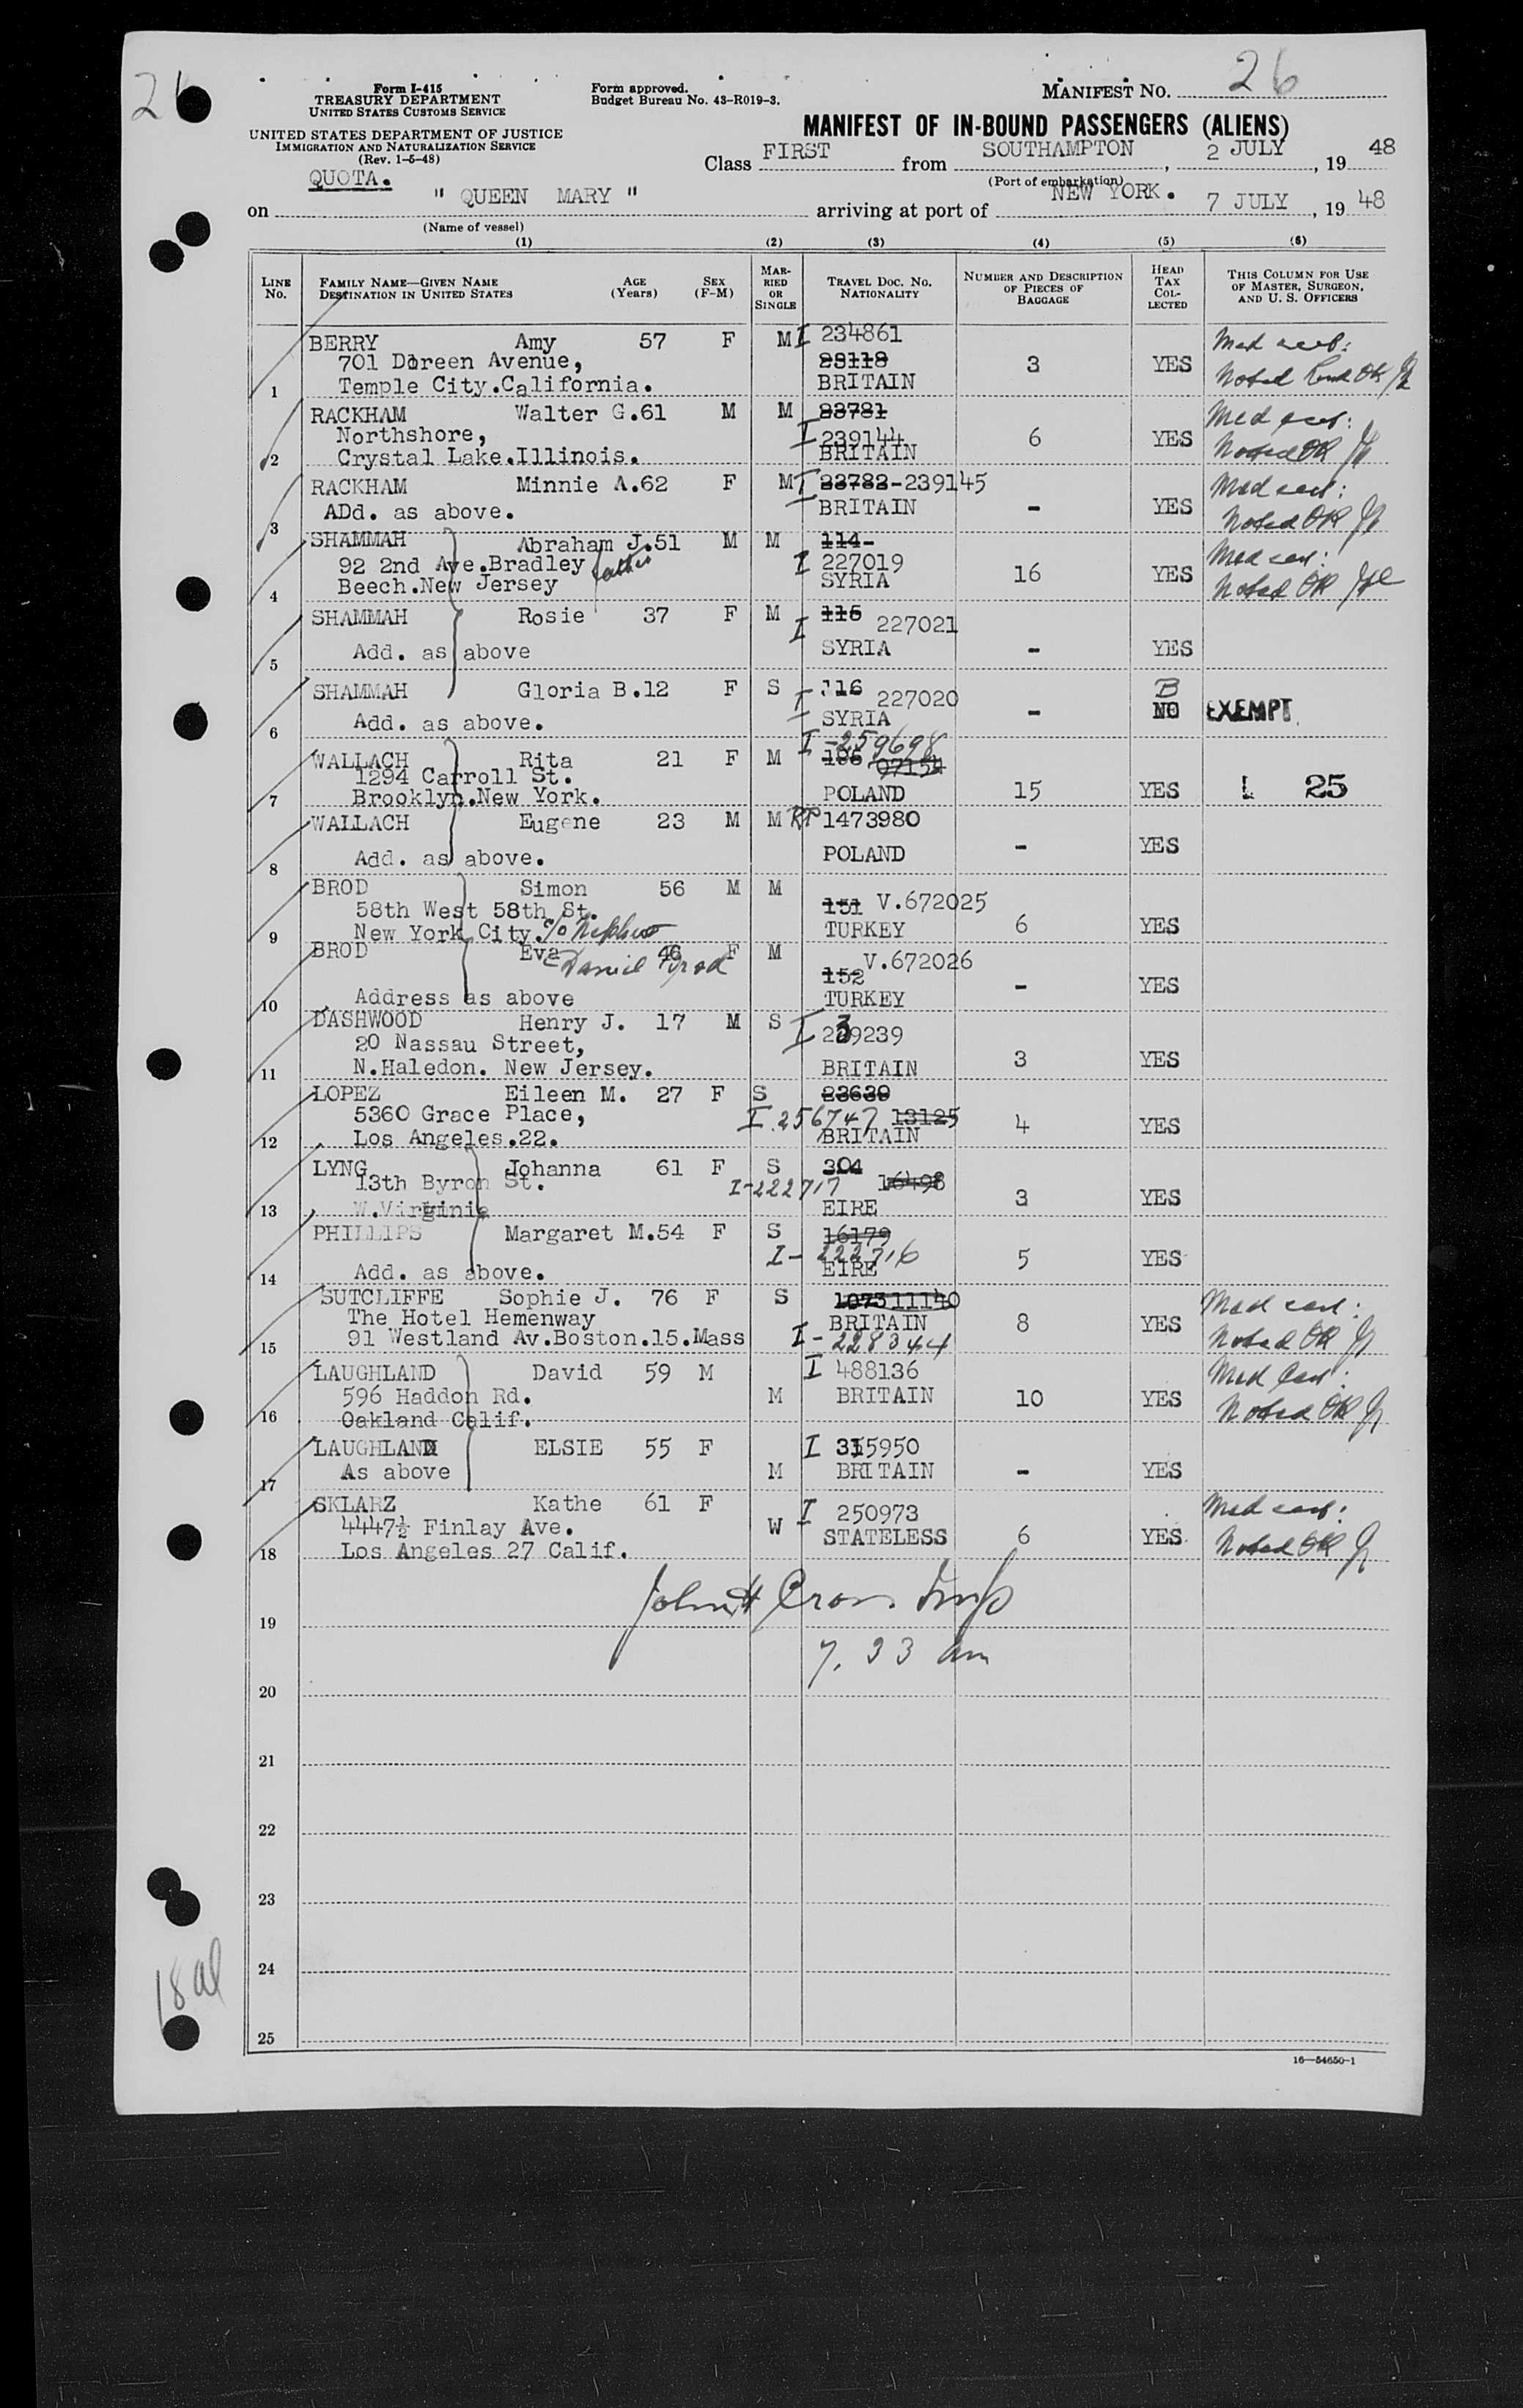 26
Form I-415
TREASURY DEPARTMENT
UNITED STATES CUSTOMS SERVICE
UNITED STATES DEPARTMENT OF JUSTICE
IMMIGRATION AND NATURALIZATION SERVICE
(Rev. 1-5-48)
QUOTA.
Form approved.
Budget Bureau No. 43-R019-3.
MANIFEST NO. 26
MANIFEST OF IN-BOUND PASSENGERS (ALIENS)
Class FIRST from SOUTHAMPTON, 2 JULY, 19 48
(Port of embarkation)
on " QUEEN MARY " arriving at port of NEW YORK. 7 JULY, 19 48
(Name of vessel)
(1) (2) (3) (4) (5) (6)
LINE No.
FAMILY NAME—GIVEN NAME
DESTINATION IN UNITED STATES
AGE (Years)
SEX (F-M)
MARRIED OR SINGLE
TRAVEL DOC. NO. NATIONALITY
NUMBER AND DESCRIPTION OF PIECES OF BAGGAGE
HEAD TAX COLLECTED
THIS COLUMN FOR USE OF MASTER, SURGEON, AND U. S. OFFICERS
BERRY Amy 57 F M I 234861 Med cert:
701 Doreen Avenue, 23118 3 YES Noted OK
1 Temple City.California. BRITAIN
RACKHAM Walter G.61 M M 23781 Med cert:
Northshore, I 239144 6 YES Noted OK
2 Crystal Lake.Illinois. BRITAIN
RACKHAM Minnie A.62 F M I 23782-239145 Med cert:
3 ADd. as above. BRITAIN - YES Noted OK
SHAMMAH Abraham J.51 M M 114- Med cert:
92 2nd Ave.Bradley father I 227019 16 YES Noted OK
4 Beech.New Jersey SYRIA
SHAMMAH Rosie 37 F M I 115 227021
5 Add. as above SYRIA - YES
SHAMMAH Gloria B.12 F S I 116 227020 B
6 Add. as above. SYRIA - NO EXEMPT
I-259698
WALLACH Rita 21 F M 195 07154
1294 Carroll St.
7 Brooklyn.New York. POLAND 15 YES L 25
WALLACH Eugene 23 M M RP 1473980
8 Add. as above. POLAND - YES
BROD Simon 56 M M
58th West 58th St. 151 V.672025
9 New York City. c/o Nephew TURKEY 6 YES
BROD Eva 46 F M V.672026
Daniel Brod 152
10 Address as above TURKEY - YES
DASHWOOD Henry J. 17 M S I 239239
20 Nassau Street,
11 N.Haledon. New Jersey. BRITAIN 3 YES
LOPEZ Eileen M. 27 F S 23639
5360 Grace Place, I.256747 13125 4 YES
12 Los Angeles.22. BRITAIN
LYNG Johanna 61 F S 304
13th Byron St. I-222717 16498 3 YES
13 W.Virginia EIRE
PHILLIPS Margaret M.54 F S 16179
I-222716 5 YES
14 Add. as above. EIRE
SUTCLIFFE Sophie J. 76 F S 1073 11140 Med cert:
The Hotel Hemenway BRITAIN 8 YES Noted OK
15 91 Westland Av.Boston.15.Mass I-228344
LAUGHLAND David 59 M I 488136 Med Cert:
596 Haddon Rd. M BRITAIN 10 YES Noted OK
16 Oakland Calif.
LAUGHLAND ELSIE 55 F I 315950
17 As above M BRITAIN - YES
SKLARZ Kathe 61 F I 250973 Med cert:
4447½ Finlay Ave. W STATELESS 6 YES Noted OK
18 Los Angeles 27 Calif.
John H Cross Insp
19
7.33 am
20
21
22
23
24
25
18 al
16—54650-1